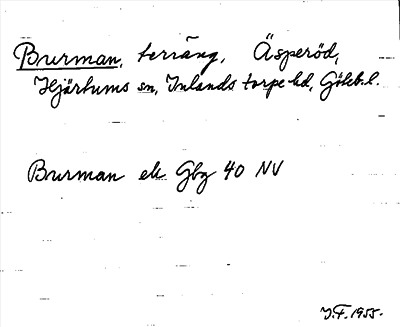 Burman, terräng, Äsperöd,
Hjärtums sn, Inlands torpe hd, Göteb. l.
Burman ek Gbg 40 NV
J.F. 1955.